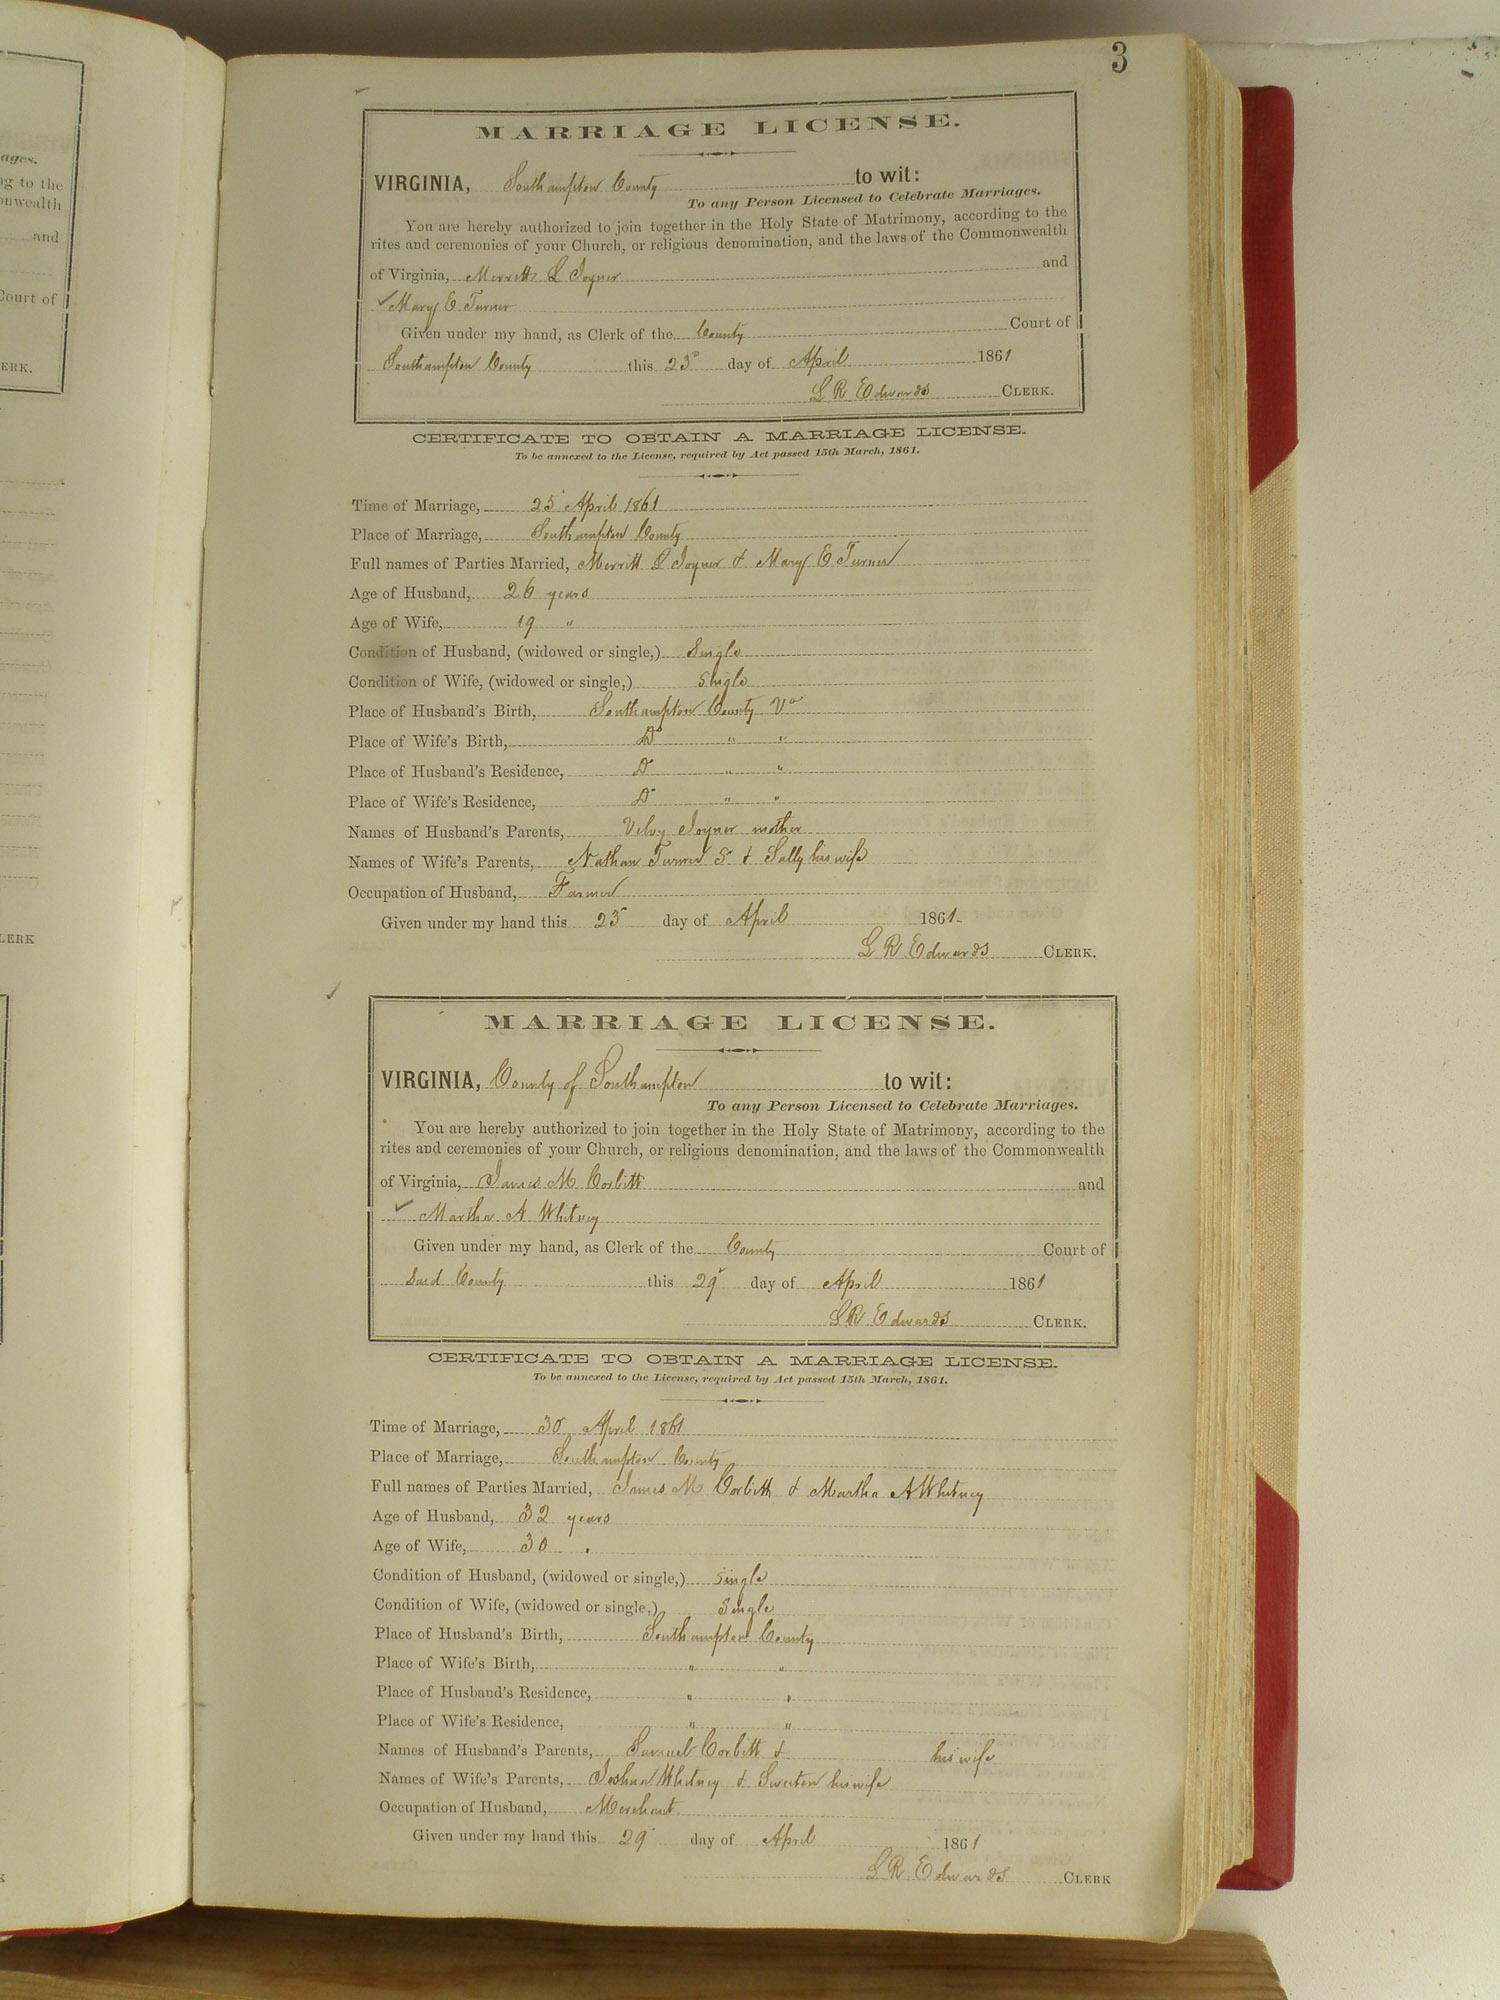 ages.
ng to the
onwealth
and
Court of
ERK.
LERK
3
MARRIAGE LICENSE.
VIRGINIA, Southampton County to wit:
To any Person Licensed to Celebrate Marriages.
You are hereby authorized to join together in the Holy State of Matrimony, according to the
rites and ceremonies of your Church, or religious denomination, and the laws of the Commonwealth
of Virginia, Merritt L Joyner and
Mary E Turner
Given under my hand, as Clerk of the County Court of
Southampton County this 23d day of April 1861
L R Edwards CLERK.
CERTIFICATE TO OBTAIN A MARRIAGE LICENSE.
To be annexed to the License, required by Act passed 15th March, 1861.
Time of Marriage, 25 April 1861
Place of Marriage, Southampton County
Full names of Parties Married, Merritt L Joyner & Mary E Turner
Age of Husband, 26 years
Age of Wife, 19 "
Condition of Husband, (widowed or single,) Single
Condition of Wife, (widowed or single,) Single
Place of Husband's Birth, Southampton County Va
Place of Wife's Birth, Do " "
Place of Husband's Residence, Do " "
Place of Wife's Residence, Do " "
Names of Husband's Parents, Joyner mother
Names of Wife's Parents, Nathan Turner & Sally his wife
Occupation of Husband, Farmer
Given under my hand this 23 day of April 1861
L R Edwards CLERK.
MARRIAGE LICENSE.
VIRGINIA, County of Southampton to wit:
To any Person Licensed to Celebrate Marriages.
You are hereby authorized to join together in the Holy State of Matrimony, according to the
rites and ceremonies of your Church, or religious denomination, and the laws of the Commonwealth
of Virginia, James M Corbitt and
Martha A Whitney
Given under my hand, as Clerk of the County Court of
Said County this 29 day of April 1861
L R Edwards CLERK.
CERTIFICATE TO OBTAIN A MARRIAGE LICENSE.
To be annexed to the License, required by Act passed 15th March, 1861.
Time of Marriage, 30 April 1861
Place of Marriage, Southampton County
Full names of Parties Married, James M Corbitt & Martha A Whitney
Age of Husband, 32 years
Age of Wife, 30 "
Condition of Husband, (widowed or single,) Single
Condition of Wife, (widowed or single,) Single
Place of Husband's Birth, Southampton County
Place of Wife's Birth, " "
Place of Husband's Residence, " "
Place of Wife's Residence, " "
Names of Husband's Parents, Samuel Corbitt & his wife
Names of Wife's Parents, Joshua Whitney & his wife
Occupation of Husband, Merchant
Given under my hand this 29 day of April 1861
L R Edwards CLERK